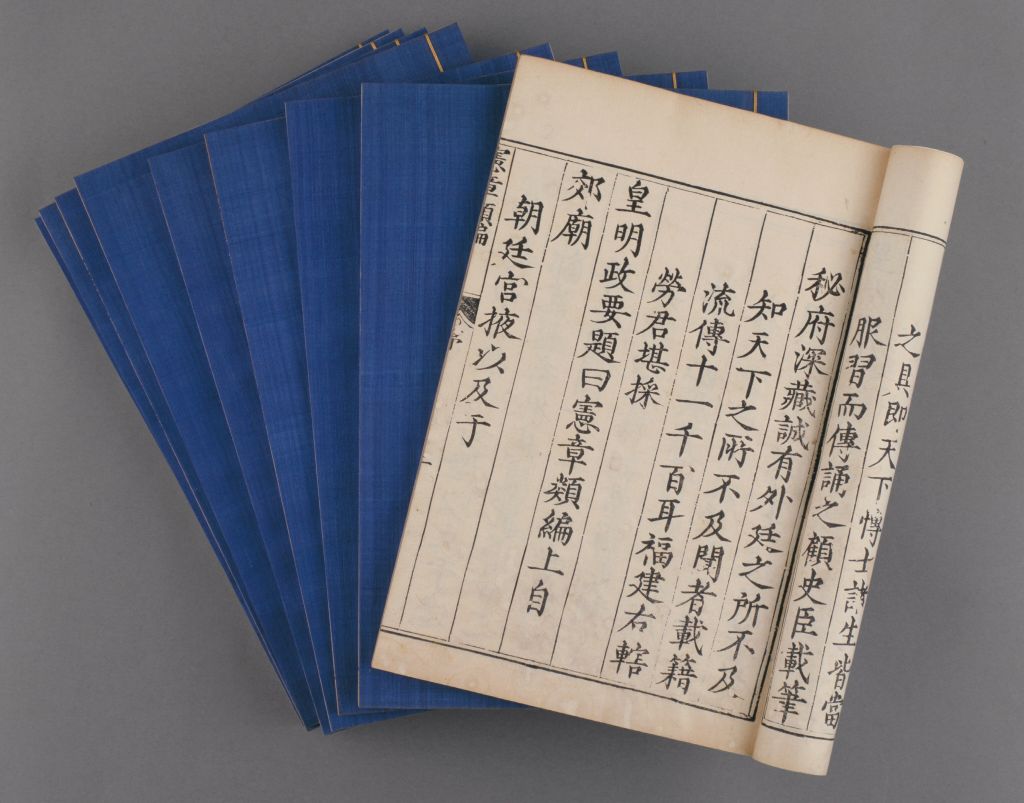 之具即天下博士諸生皆當
服習而傳誦之顧史臣載筆
秘府深藏誠有外廷之所不及
知天下之所不及聞者載籍
流傳十一千百耳福建右轄
勞君堪採
皇明政要題曰憲章類編上自
郊廟
朝廷宮掖以及于
憲章類編
序
一